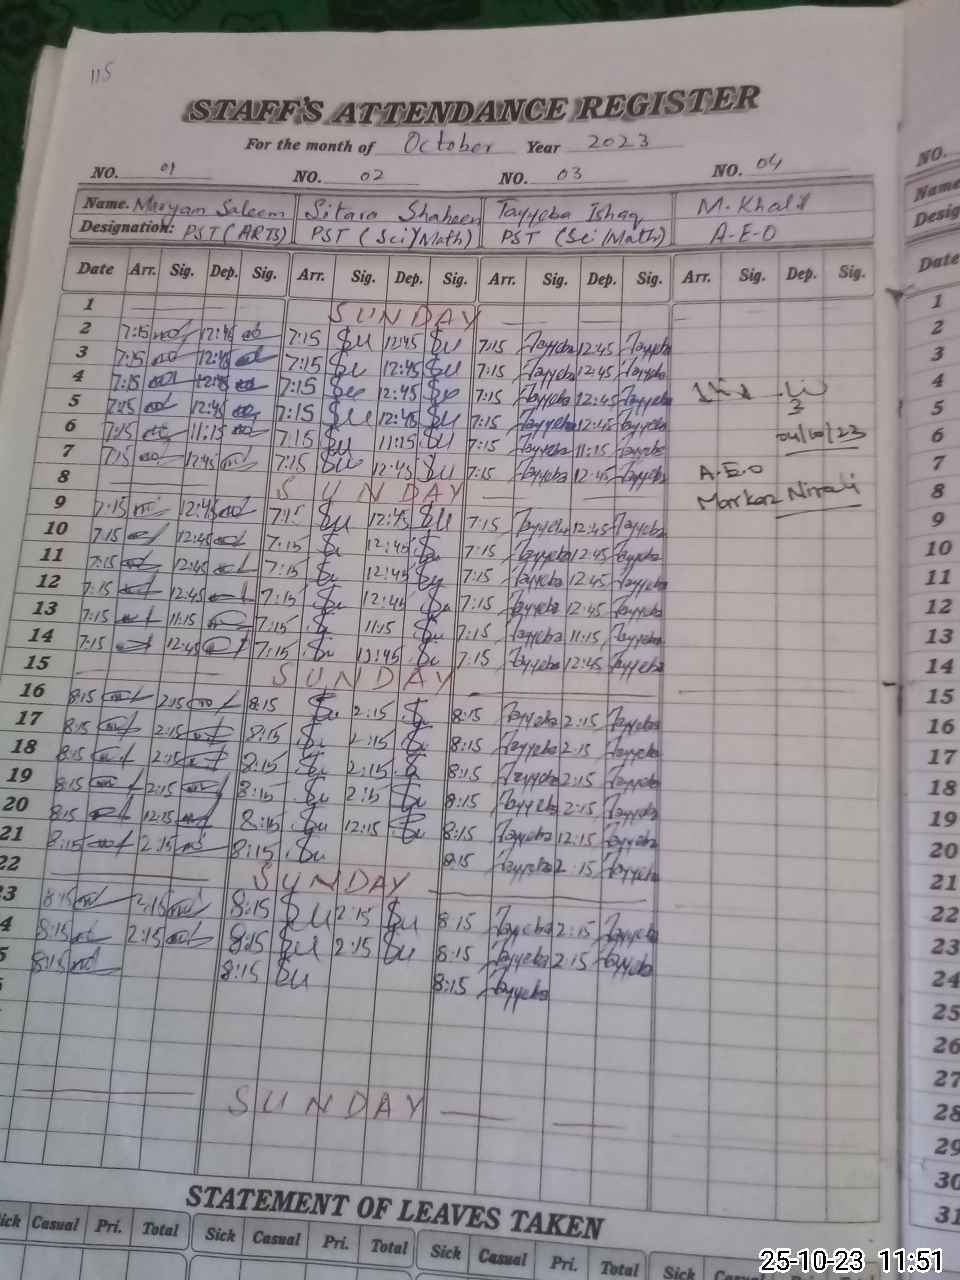 115
STAFF'S ATTENDANCE REGISTER
For the month of October Year 2023
NO. 01 NO. 02 NO. 03 NO. 04 NO.
Name. Maryam Saleem Sitara Shaheen Tayyeba Ishaq M. Khalil Name
Designation: PST (ARTS) PST (Sci/Math) PST (Sci/Math) A-E-O Desig
Date Arr. Sig. Dep. Sig. Arr. Sig. Dep. Sig. Arr. Sig. Dep. Sig. Arr. Sig. Dep. Sig. Date
1 SUNDAY 1
2 7:15 12:45 7:15 Su 12:45 Su 7:15 Tayyeba 12:45 Tayyeba 2
3 7:15 12:45 7:15 Su 12:45 Su 7:15 Tayyeba 12:45 Tayyeba 3
4 7:15 12:45 7:15 Su 12:45 Su 7:15 Tayyeba 12:45 Tayyeba 4
5 7:15 12:45 7:15 Su 12:45 Su 7:15 Tayyeba 12:45 Tayyeba 5
6 7:15 11:15 7:15 Su 11:15 Su 7:15 Tayyeba 11:15 Tayyeba 04/10/23 6
7 7:15 12:45 7:15 Su 12:45 Su 7:15 Tayyeba 12:45 Tayyeba A.E.O 7
8 SUNDAY Markaz 8
9 7:15 12:45 7:15 Su 12:45 Su 7:15 Tayyeba 12:45 Tayyeba 9
10 7:15 12:45 7:15 Su 12:45 Su 7:15 Tayyeba 12:45 Tayyeba 10
11 7:15 12:45 7:15 Su 12:45 Su 7:15 Tayyeba 12:45 Tayyeba 11
12 7:15 12:45 7:15 Su 12:45 Su 7:15 Tayyeba 12:45 Tayyeba 12
13 7:15 11:15 7:15 Su 11:15 Su 7:15 Tayyeba 11:15 Tayyeba 13
14 7:15 12:45 7:15 Su 12:45 Su 7:15 Tayyeba 12:45 Tayyeba 14
15 SUNDAY 15
16 8:15 2:15 8:15 Su 2:15 Su 8:15 Tayyeba 2:15 Tayyeba 16
17 8:15 2:15 8:15 Su 2:15 Su 8:15 Tayyeba 2:15 Tayyeba 17
18 8:15 2:15 8:15 Su 2:15 Su 8:15 Tayyeba 2:15 Tayyeba 18
19 8:15 2:15 8:15 Su 2:15 Su 8:15 Tayyeba 2:15 Tayyeba 19
20 8:15 12:15 8:15 Su 12:15 Su 8:15 Tayyeba 12:15 Tayyeba 20
21 8:15 2:15 8:15 Su 8:15 Tayyeba 2:15 Tayyeba 21
22 SUNDAY 22
3 8:15 2:15 8:15 Su 2:15 Su 8:15 Tayyeba 2:15 Tayyeba 23
4 8:15 2:15 8:15 Su 2:15 Su 8:15 Tayyeba 2:15 Tayyeba 24
5 8:15 8:15 Su 8:15 Tayyeba 25
26
27
28
SUNDAY 29
30
31
STATEMENT OF LEAVES TAKEN
ick Casual Pri. Total Sick Casual Pri. Total Sick Casual Pri. Total Sick Casual
25-10-23 11:51